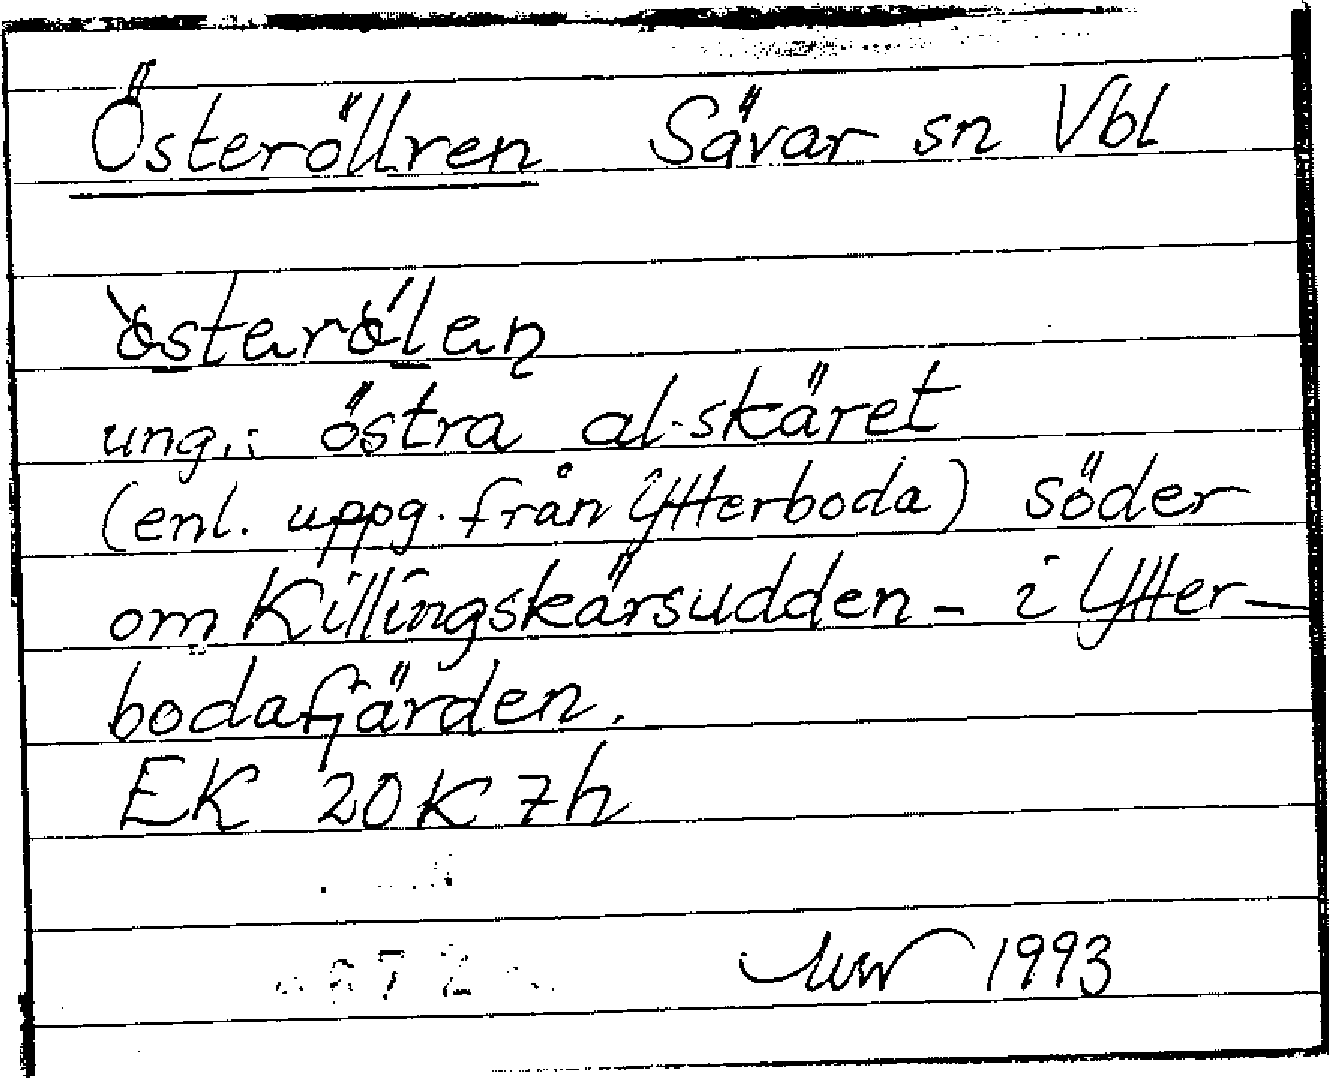 Österöllren Sävar sn Vbl
ung.: östra al-skäret
(enl. uppg. från Ytterboda) söder
om Killingskärsudden - i Ytter-
bodafjärden.
EK 20K 7h
1993